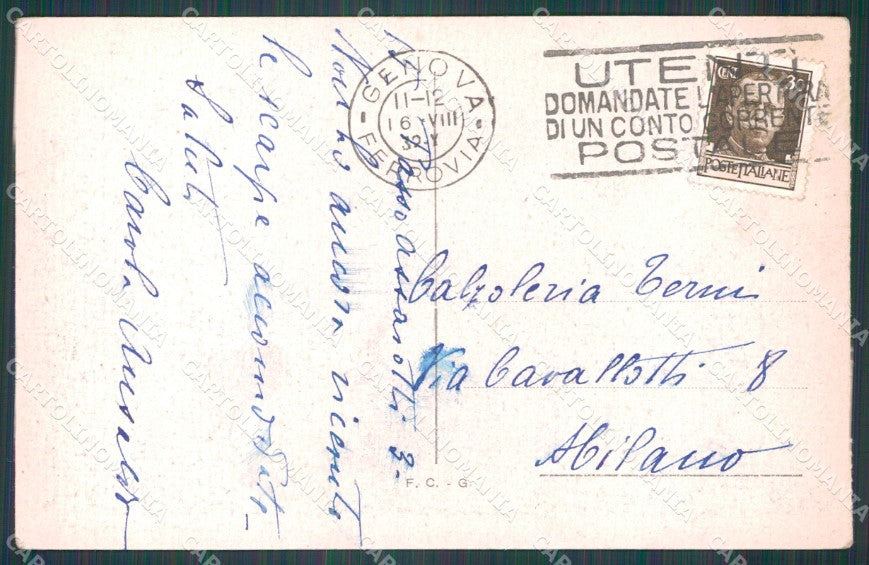 GENOVA
FERROVIA
11-12
16 VIII
32 X
UTENTI
DOMANDATE L'APERTURA
DI UN CONTO CORRENTE
POSTALE
CENT 30
POSTE ITALIANE
Calzoleria Terni
Via Cavallotti 8
Milano
assarotti 3-
Non ho ancora ricevuto
le scarpe accomodate_
Saluti
Carola
F. C. - G
CARTOLINOMANIA